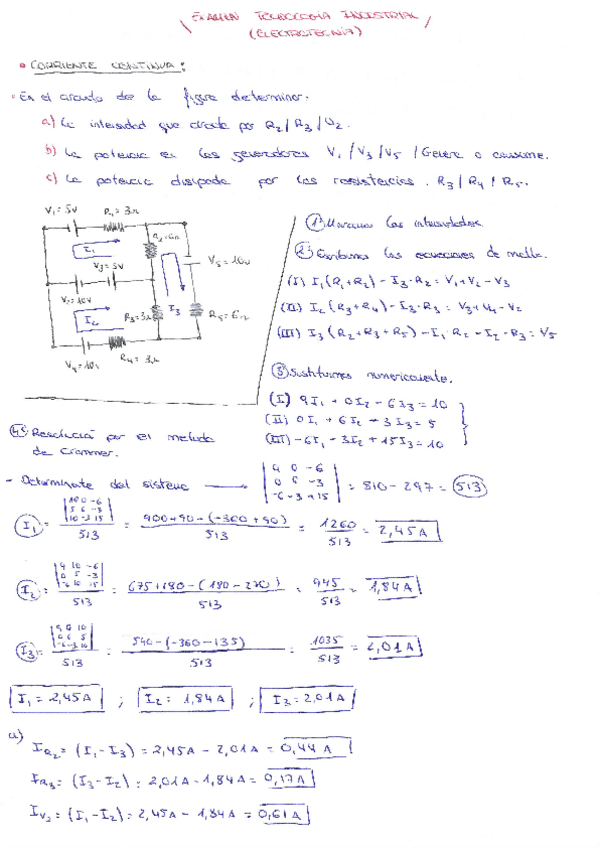 EXAMEN TECNOLOGIA INDUSTRIAL
(ELECTROTECNIA)
• CORRIENTE CONTINUA:
• En el circuito de la figura determinar:
a) La intensidad que circula por R2 / R3 / V2.
b) La potencia en los generadores V1 / V3 / V5 / Genera o consume.
c) La potencia disipada por las resistencias. R3 / R4 / R5.
V1 = 5V R1 = 3Ω
R2 = 6Ω
I1
V5 = 10V
V2 = 10V
I2
R3 = 3Ω
I3
R5 = 6Ω
V4 = 10V
R4 = 3Ω
① Marcamos las intensidades.
② Escribimos las ecuaciones de malla.
(I) I1 (R1 + R2) - I3 · R2 = V1 + V2 - V3
(II) I2 (R3 + R4) - I3 · R3 = V3 + V4 - V2
(III) I3 (R2 + R3 + R5) - I1 · R2 - I2 · R3 = V5
③ Sustituimos numéricamente.
(I) 9I1 + 0I2 - 6I3 = 10
(II) 0I1 + 6I2 - 3I3 = 5
(III) -6I1 - 3I2 + 15I3 = 10
④ Resolución por el metodo
de Crammer.
- Determinante del sistema → |9 0 -6
0 6 -3
-6 -3 +15| = 810 - 297 = 513
I1 = |10 0 -6
5 6 -3
10 -3 15| / 513 = 900 + 90 - (-360 + 90) / 513 = 1260 / 513 = 2,45A
I2 = |9 10 -6
0 5 -3
-6 10 15| / 513 = 675 + 180 - (180 - 270) / 513 = 945 / 513 = 1,84A
I3 = |9 0 10
0 6 5
-6 -3 10| / 513 = 540 - (-360 - 135) / 513 = 1035 / 513 = 2,01A
I1 = 2,45A ; I2 = 1,84A ; I3 = 2,01A
a) IR2 = (I1 - I3) = 2,45A - 2,01A = 0,44A
IR3 = (I3 - I2) = 2,01A - 1,84A = 0,17A
IV2 = (I1 - I2) = 2,45A - 1,84A = 0,61A